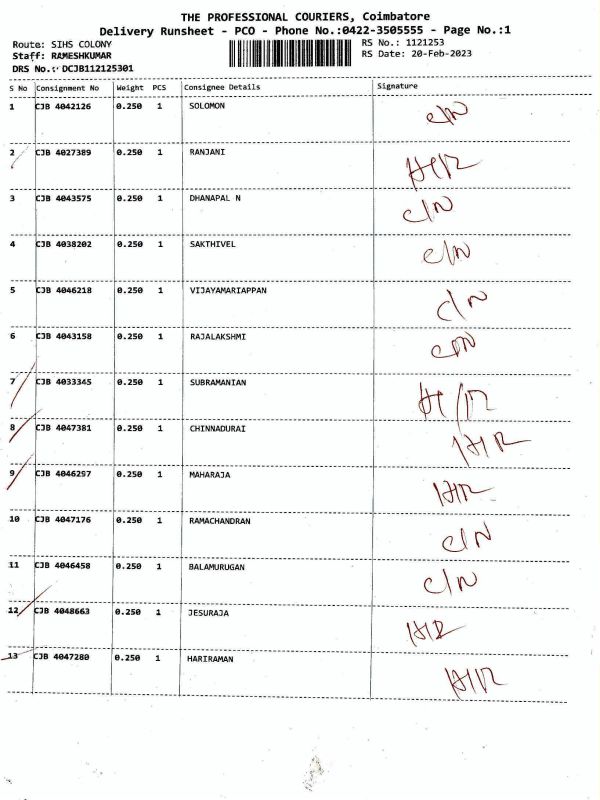 THE PROFESSIONAL COURIERS, Coimbatore
Delivery Runsheet - PCO - Phone No.:0422-3505555 - Page No.:1
Route: SIHS COLONY
RS No.: 1121253
Staff: RAMESHKUMAR
RS Date: 20-Feb-2023
DRS No.: DCJB112125301
S No Consignment No Weight PCS Consignee Details Signature
1 CJB 4042126 0.250 1 SOLOMON C/N
2 CJB 4027389 0.250 1 RANJANI H/R
3 CJB 4043575 0.250 1 DHANAPAL N C/N
4 CJB 4038202 0.250 1 SAKTHIVEL C/N
5 CJB 4046218 0.250 1 VIJAYAMARIAPPAN C/N
6 CJB 4043158 0.250 1 RAJALAKSHMI C/N
7 CJB 4033345 0.250 1 SUBRAMANIAN H/R
8 CJB 4047381 0.250 1 CHINNADURAI H/R
9 CJB 4046297 0.250 1 MAHARAJA H/R
10 CJB 4047176 0.250 1 RAMACHANDRAN C/N
11 CJB 4046458 0.250 1 BALAMURUGAN C/N
12 CJB 4048663 0.250 1 JESURAJA H/R
13 CJB 4047280 0.250 1 HARIRAMAN H/R